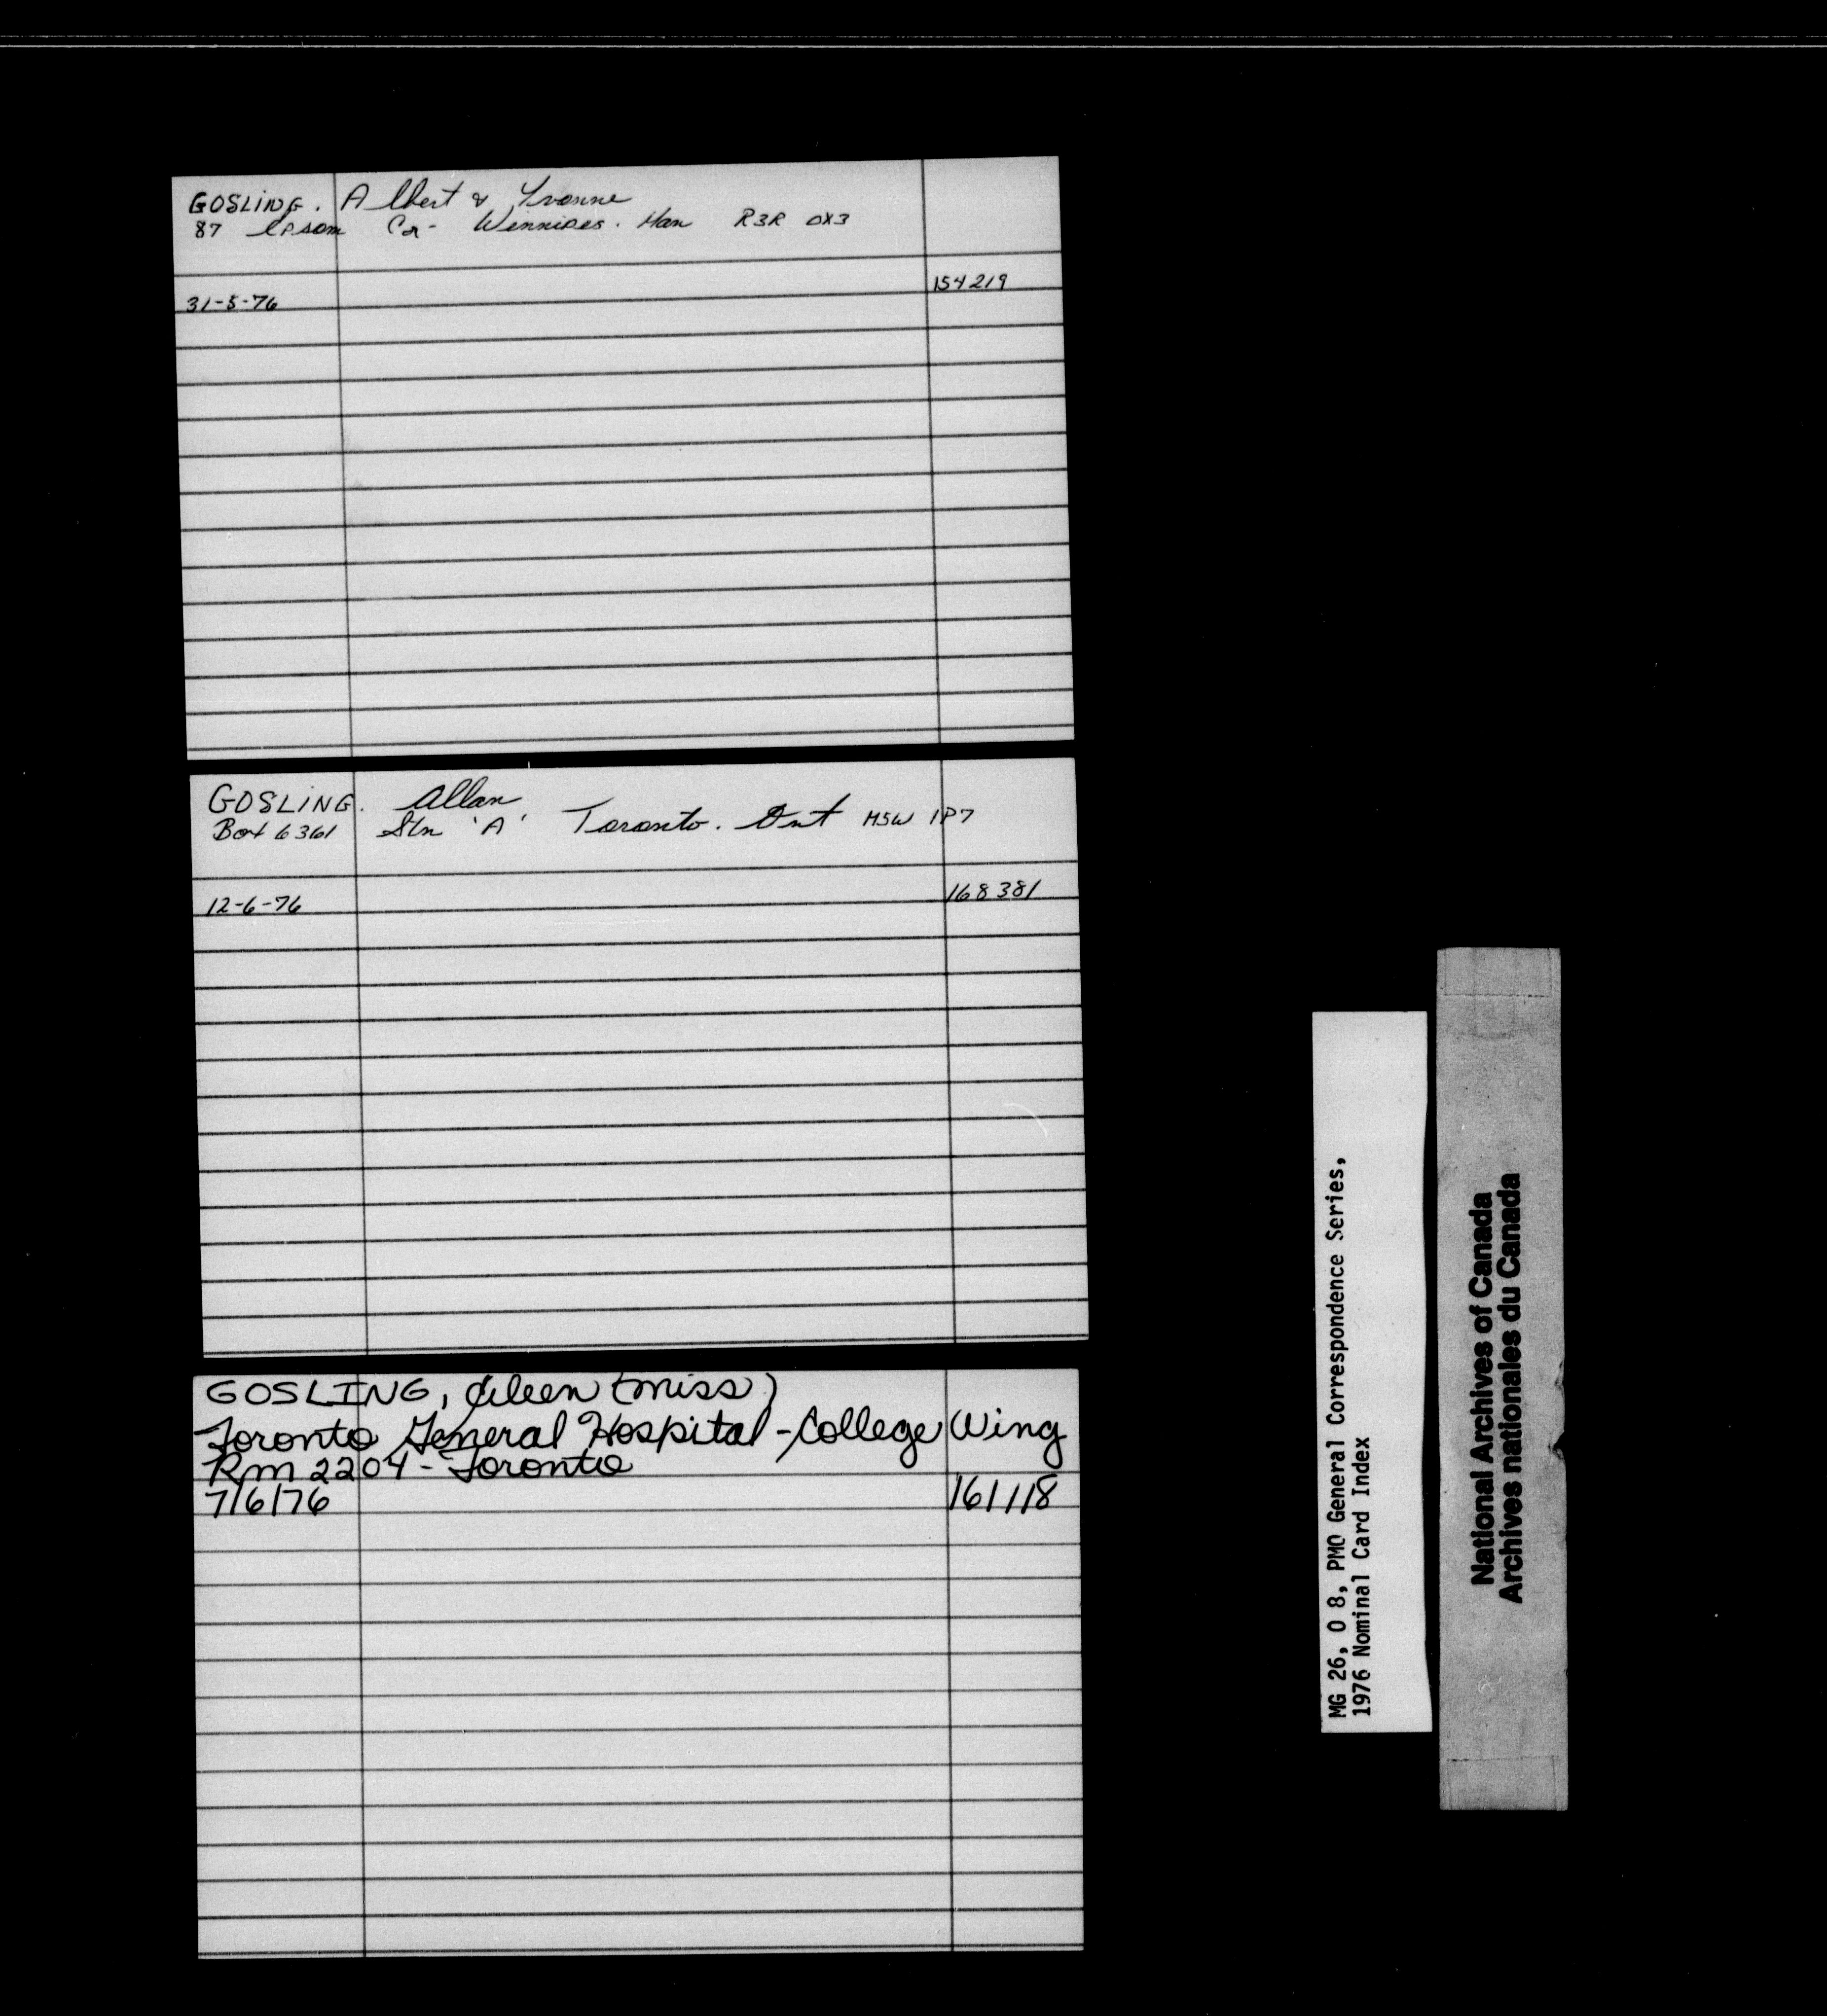 GOSLING. Albert & Yvonne
87 Epsom Cr- Winnipeg. Man R3R 0X3
154219
31-5-76
GOSLING. Allan
Box 6361 Stn 'A' Toronto. Ont M5W 1P7
168381
12-6-76
GOSLING, Eileen (Miss)
Toronto General Hospital - College Wing
Rm 2204 - Toronto
7/6/76 161118
MG 26, O 8, PMO General Correspondence Series,
1976 Nominal Card Index
National Archives of Canada
Archives nationales du Canada